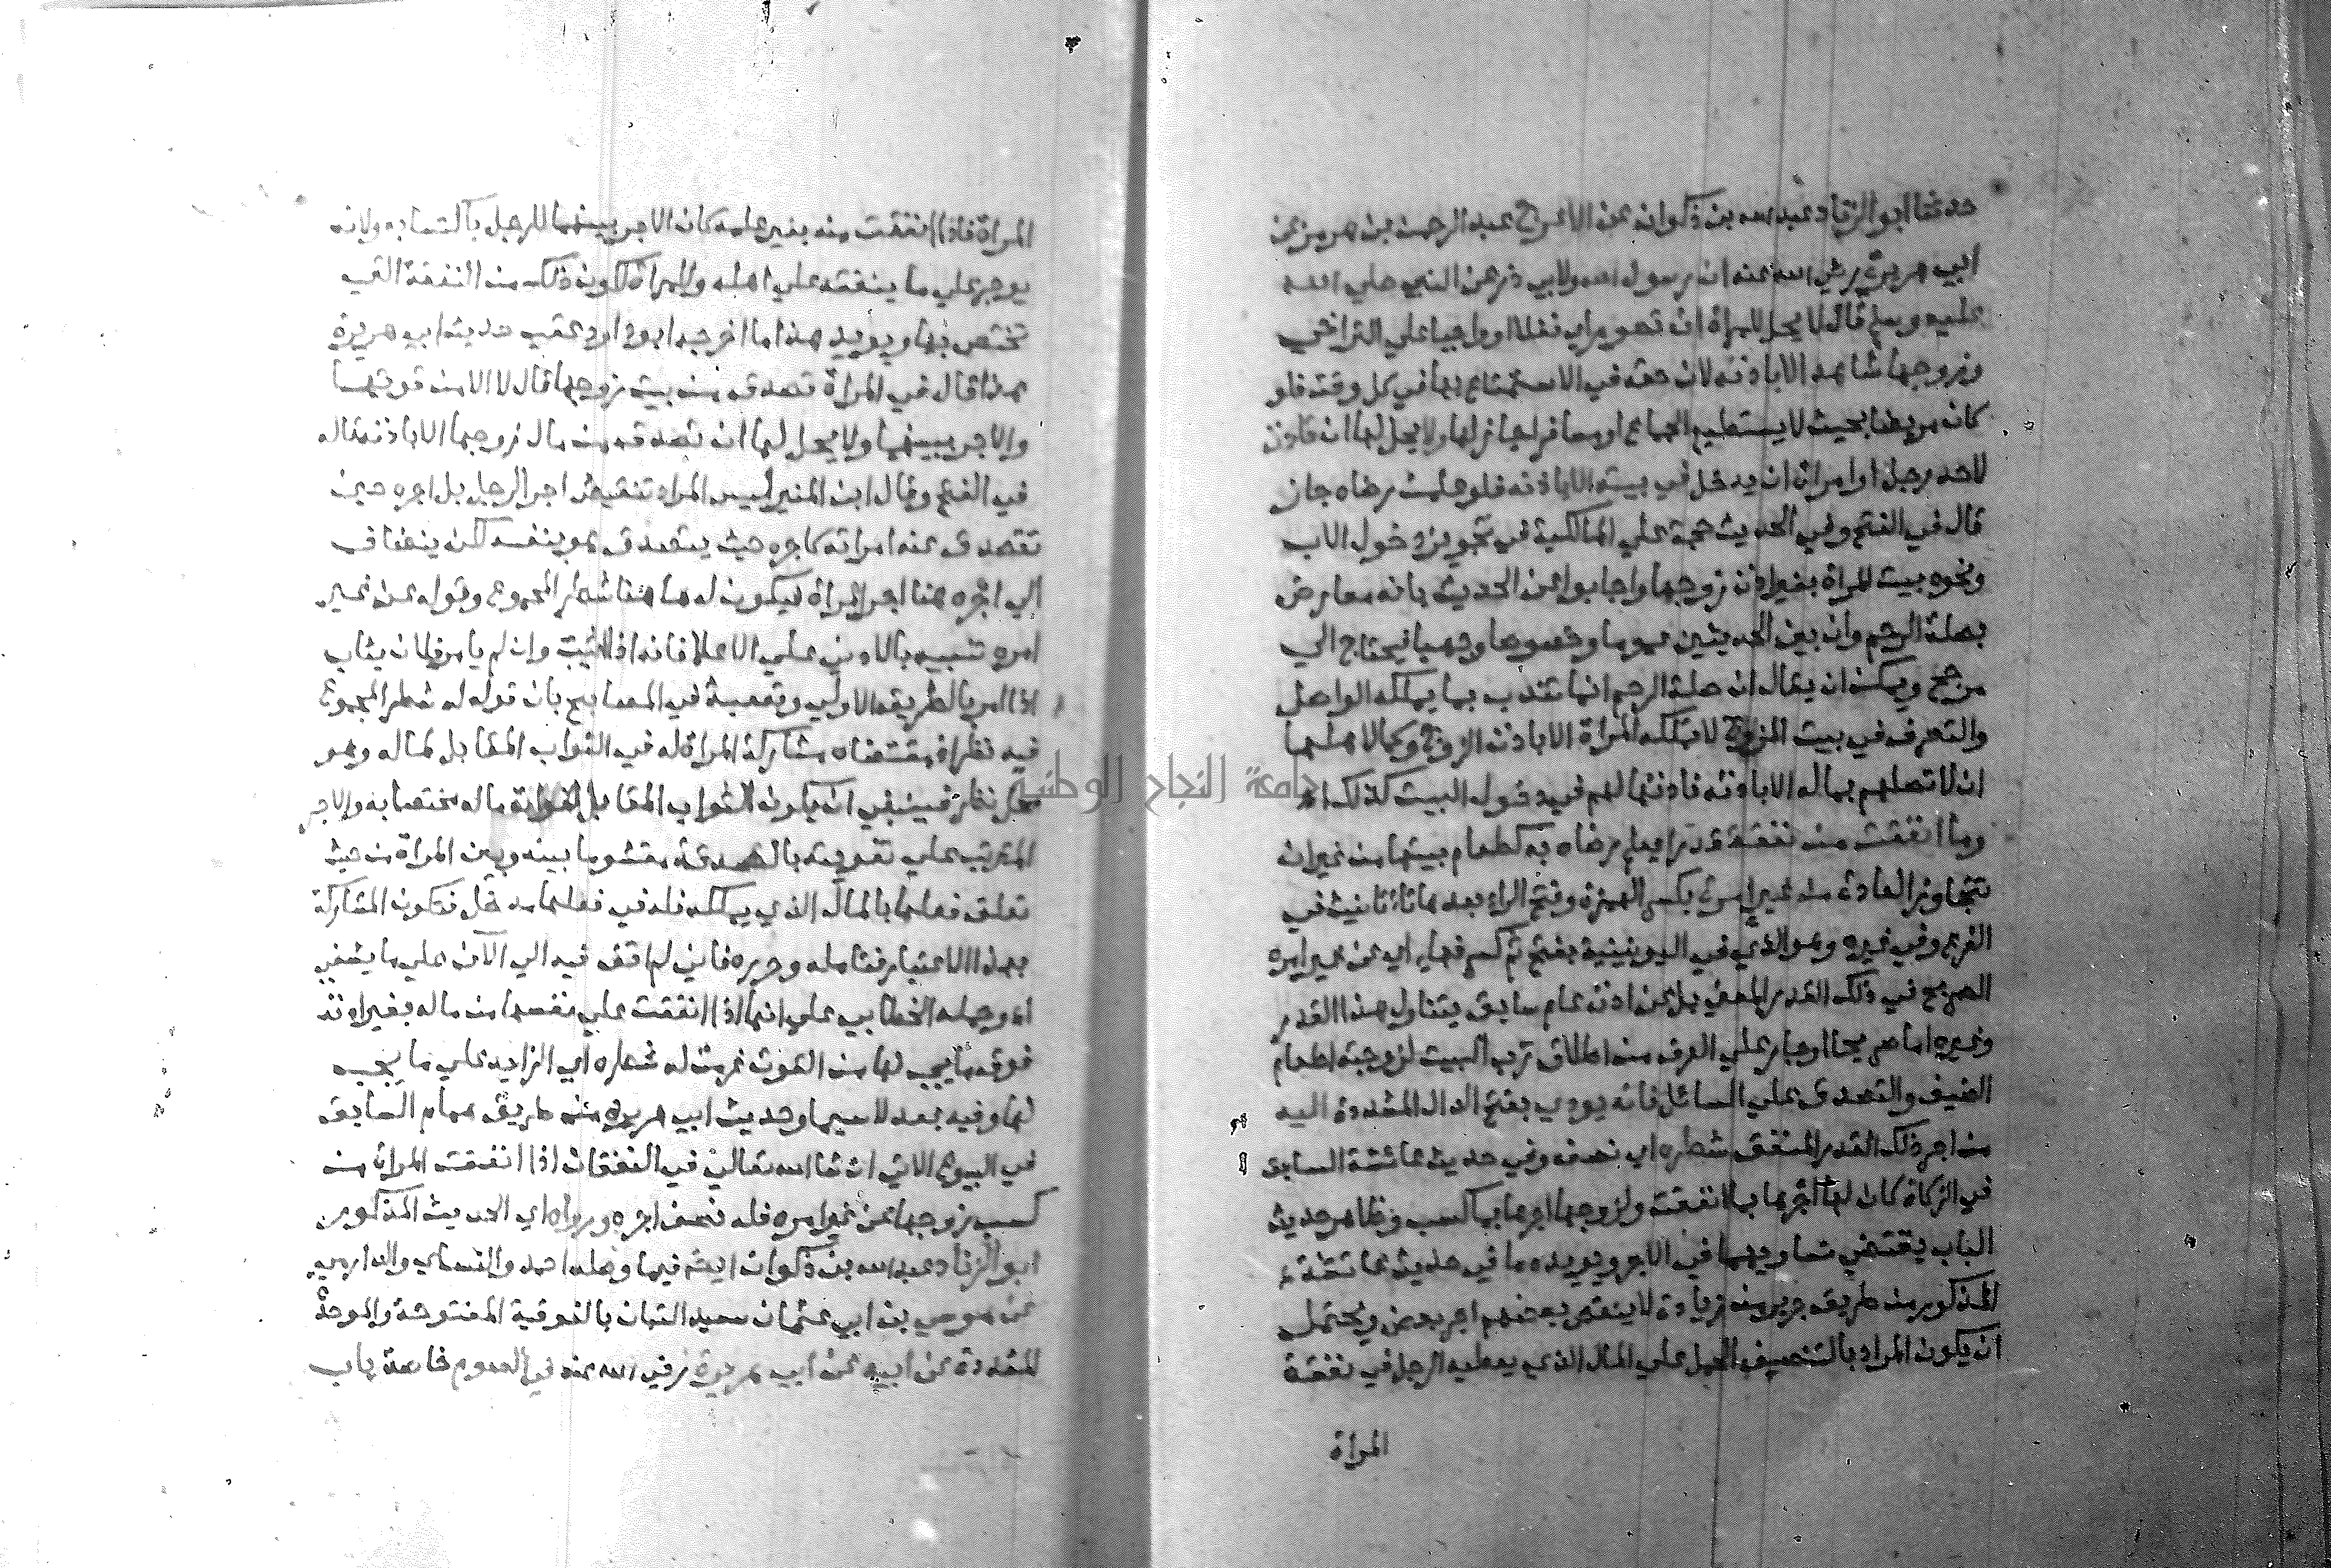 حدثنا ابو الزناد عبد الله بن ذكوان عن الاعرج عبد الرحمن بن هرمز عن
ابي هريرة رضي الله عنه ان رسول الله ولابي ذر عن النبي صلي الله
عليه وسلم قال لا يحل للمراة ان تصوم اي نفلا او واجبا علي التراخي
وزوجها شاهد الا باذنه لان حقه في الاستمتاع بها في كل وقت فلو
كان مريضا بحيث لا يستطيع الجماع او مسافرا جاز لها ولا يحل لها ان تاذن
لاحد رجل او امراة ان يدخل في بيته الا باذنه فلو علمت رضاه جاز
قال في الفتح وفي الحديث حجة علي المالكية في تجويز دخول الاب
ونحوه بيت المراة بغير اذن زوجها واجابوا عن الحديث بانه معارض
بصلة الرحم وان بين الحديثين عموما وخصوصا وجهيا فيحتاج الي
مرجح ويمكن ان يقال ان صلة الرحم انما تندب بما يملكه الواصل
والتصرف في بيت الزوج لا تملكه المراة الا باذن الزوج وكما لاهلها
ان لا تصلهم بماله الا باذنه فاذنها لهم في دخول البيت كذلك اه
وما انفقت من نفقة قدرا يعلم رضاه به كطعام بيتها من غير ان
تتجاوز العادة من غير امره بكسر الهمزة وفتح الراء بعدها تاء تانيث في
الفرع وفي غيره وهو الذي في اليونينية بفتح ثم كسر فهاء اي عن غير امره
الصريح في ذلك القدر المعين بل عن اذن عام سابق يتناول هذا القدر
وغيره اما صريحا او جار علي العرف من اطلاق رب البيت لزوجته اطعام
الضيف والتصدق علي السائل فانه يودي بفتح الدال المشددة اليه
من اجر ذلك القدر المنفق شطره اي نصفه وفي حديث عائشة السابق
في الزكاة كان لها اجرها بما انفقت ولزوجها اجرها بما كسب وظاهر حديث
الباب يقتضي تساويهما في الاجر ويويده ما في حديث عائشة
المذكور من طريق جرير من زيادة لا ينقص بعضهم اجر بعض ويحتمل
ان يكون المراد بالتنصيف الحمل علي المال الذي يعطيه الرجل في نفقة
المراة
المراة فاذا انفقت منه بغير علمه كان الاجر بينهما للرجل باكتسابه ولانه
يوجر علي ما ينفقه علي اهله وللمراة لكون ذلك من النفقة التي
تختص بها ويويد هذا ما اخرجه ابو داود عقب حديث ابي هريرة
هذا قال في المراة تصدق من بيت زوجها قال لا الا من قوتها
والاجر بينهما ولا يحل لها ان تصدق من مال زوجها الا باذنه قاله
في الفتح وقال ابن المنير ليس المراد تنقيص اجر الرجل بل اجره حين
تتصدق عنه امراته كاجره حيث يتصدق هو بنفسه لكن ينضاف
الي اجره هنا اجر المراة فيكون له ها هنا شطر المجموع وقوله عن غير
امره تنبيه بالادني علي الاعلا فانه اذا اثيب وان لم يامر فلان يثاب
اذا امر بالطريق الاولي وتعقبه في المصابيح بان قوله له شطر المجموع
فيه نظر اذ مقتضاه مشاركة المراة له في الثواب المقابل لماله وهو
محل نظر فينبغي ان يكون الثواب المقابل لفوات ماله مختصا به والاجر
المترتب علي تفويته بالصدقة مقسوما بينه وبين المراة من حيث
تعلق فعلها بالمال الذي يملكه فله في فعلها مدخل فتكون المشاركة
بهذا الاعتبار فتامله وحرره فاني لم اقف فيه الي الان علي ما يشفي
اه وحمله الخطابي علي انها اذا انفقت علي نفسها من ماله بغير اذنه
فوق ما يجب لها من القوت غرمت له شطره اي الزايد علي ما يجب
لها وفيه بعد لا سيما وحديث ابي هريرة من طريق همام السابق
في البيوع الاتي ان شا الله تعالي في النفقات اذا انفقت المراة من
كسب زوجها عن غير امره فله نصف اجره ورواه اي الحديث المذكور
ابو الزناد عبد الله بن ذكوان ايضا فيما وصله احمد والنساي والدارمي
عن موسي بن ابي عثمان سعيد التبان بالفوقية المفتوحة والموحدة
المشددة عن ابيه عن ابي هريرة رضي الله عنه في الصوم خاصة باب
جامعة النجاح الوطنية